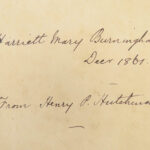 Harriett Mary Burningha
Decr 1861.
From Henry P. Hutchin